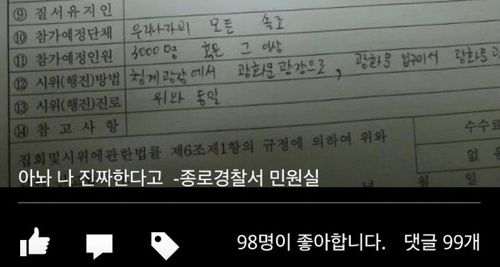 ⑨ 질서유지인
⑩ 참가예정단체 우리나라의 모든 솔로
⑪ 참가예정인원 3000명 혹은 그 이상
⑫ 시위(행진)방법 청계광장에서 광화문광장으로, 광화문 입구에서 광화문
⑬ 시위(행진)진로 위와 동일
⑭ 참고사항
집회및시위에관한법률 제6조제1항의 규정에 의하여 위와
수수료
년 월 일
아놔 나 진짜한다고 -종로경찰서 민원실
98명이 좋아합니다. 댓글 99개